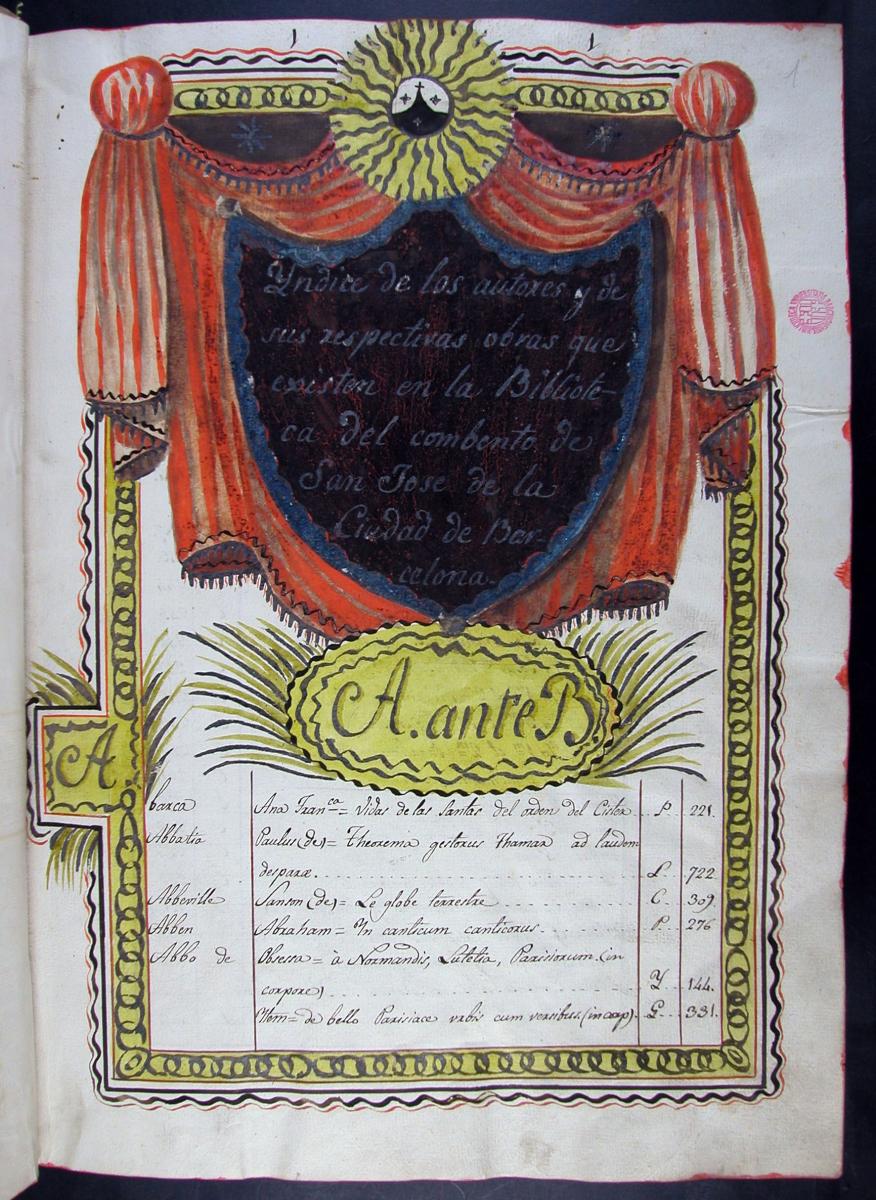 1
Yndice de los autores y de
sus respectivas obras que
existen en la Bibliote-
ca del combento de
San Jose de la
Ciudad de Bar-
celona.
A. ante B
A
barca Ana Fran.ca = Vidas de las Santas del orden del Cister .. P. 221.
Abbatia Paulus (de) = Theorema gestorus Thamar ad laudem
desparæ ... L. 722
Abbeville Sanson (de) = Le globe terrestre ... C. 309.
Abben Abraham = Yn canticum canticorus ... P. 276
Abbo de Obsessa = à Normandis, Lutetia, Parisiorum (in
corpore) ... Y. 144.
Ytem = de bello Parisiace urbis cum versibus. (in corp) G. 331.